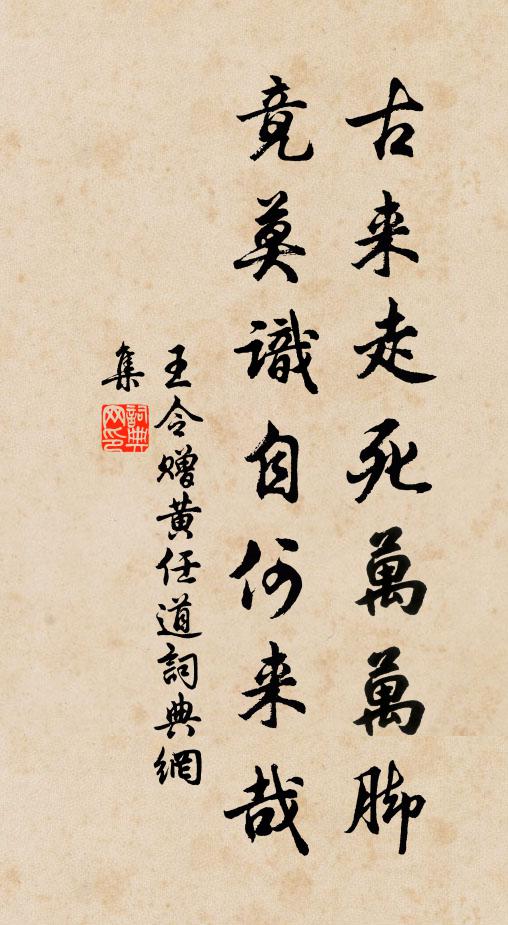 古来走死萬萬脚
竟莫識自何来哉
王令贈黄任道詞典網
集
詞典网印